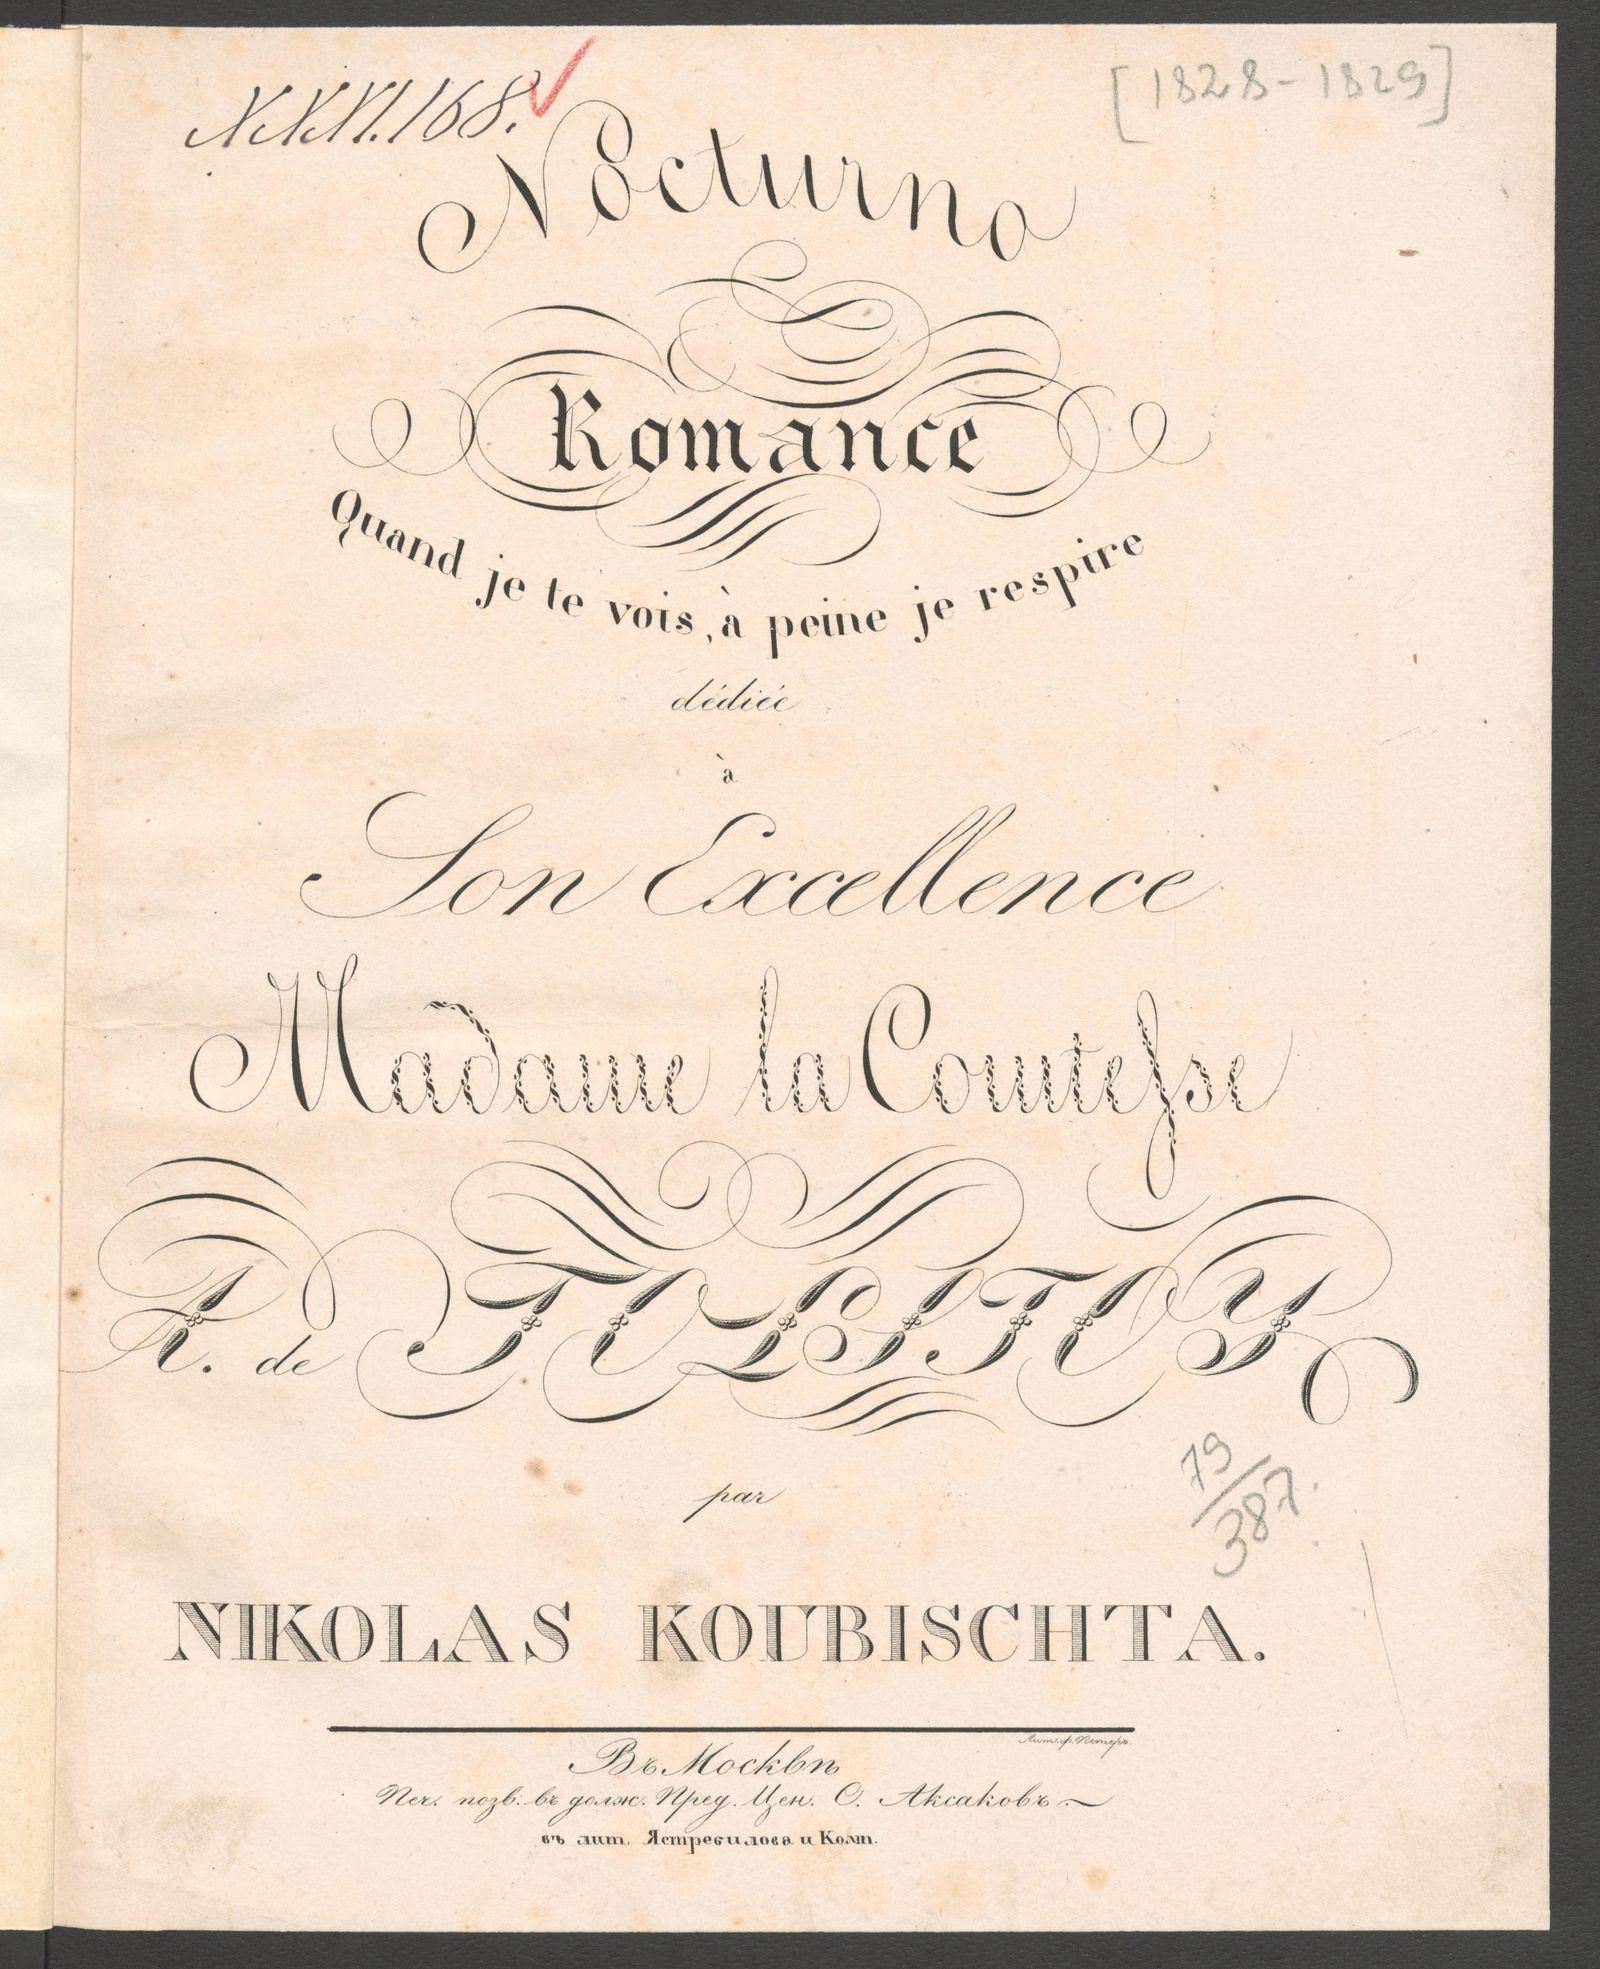 XXXI.168.
[1828-1829]
Nocturno
Romance
Quand je te vois, à peine je respire
dédiée
à
Son Excellence
Madame la Comtesse
A. de TOLSTOY
par
79/387.
NIKOLAS KOUBISCHTA.
Лит. ф. Петеръ.
Въ Москвѣ
Печ. позв. въ долж. Пред. Цен. С. Аксаковъ.
въ лит. Ястребилова и Комп.